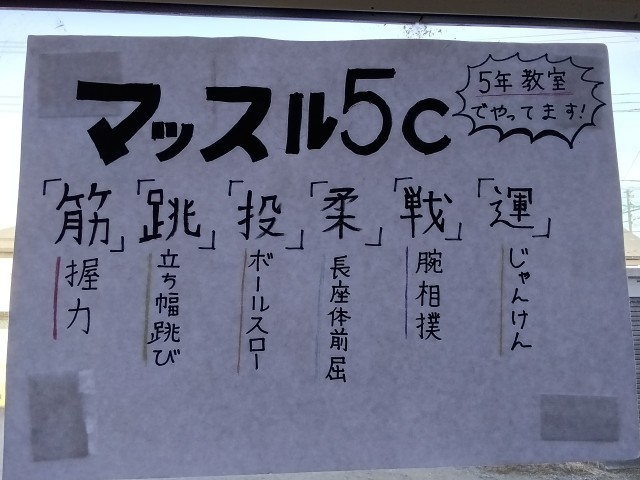 マッスル5c
5年教室
でやってます!
「運」
じゃんけん
「戦」
腕相撲
「柔」
長座体前屈
「投」
ボールスロー
「跳」
立ち幅跳び
「筋」
握力